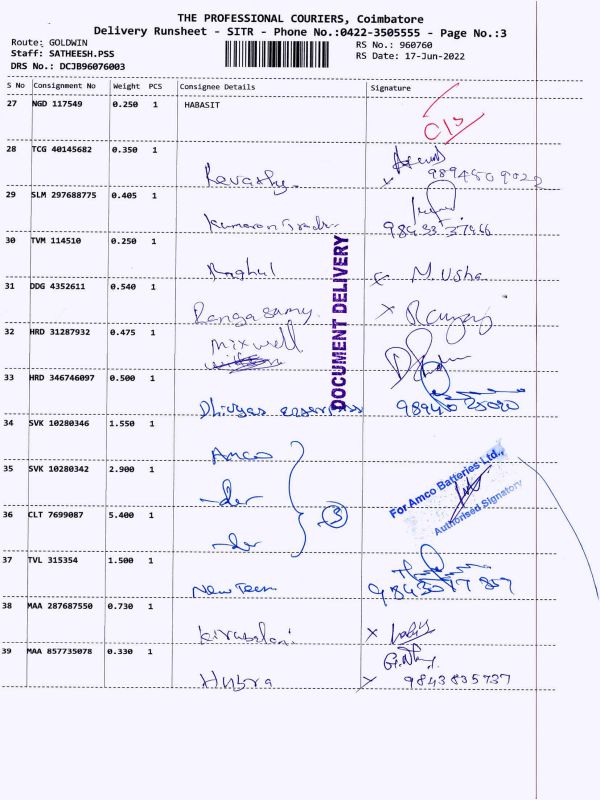 THE PROFESSIONAL COURIERS, Coimbatore
Delivery Runsheet - SITR - Phone No.:0422-3505555 - Page No.:3
Route: GOLDWIN
RS No.: 960760
Staff: SATHEESH.PSS
RS Date: 17-Jun-2022
DRS No.: DCJB96076003
S No Consignment No Weight PCS Consignee Details Signature
27 NGD 117549 0.250 1 HABASIT
28 TCG 40145682 0.350 1
Revathy
29 SLM 297688775 0.405 1
30 TVM 114510 0.250 1
Raghul M. Usha
31 DDG 4352611 0.540 1
Rangasamy
32 HRD 31287932 0.475 1
Mixwell
33 HRD 346746097 0.500 1
DOCUMENT DELIVERY
34 SVK 10280346 1.550 1
Amco
35 SVK 10280342 2.900 1
For Amco Batteries Ltd.,
Authorised Signatory
36 CLT 7699087 5.400 1
3
37 TVL 315354 1.500 1
New Teem
38 MAA 287687550 0.730 1
39 MAA 857735078 0.330 1
9843835737